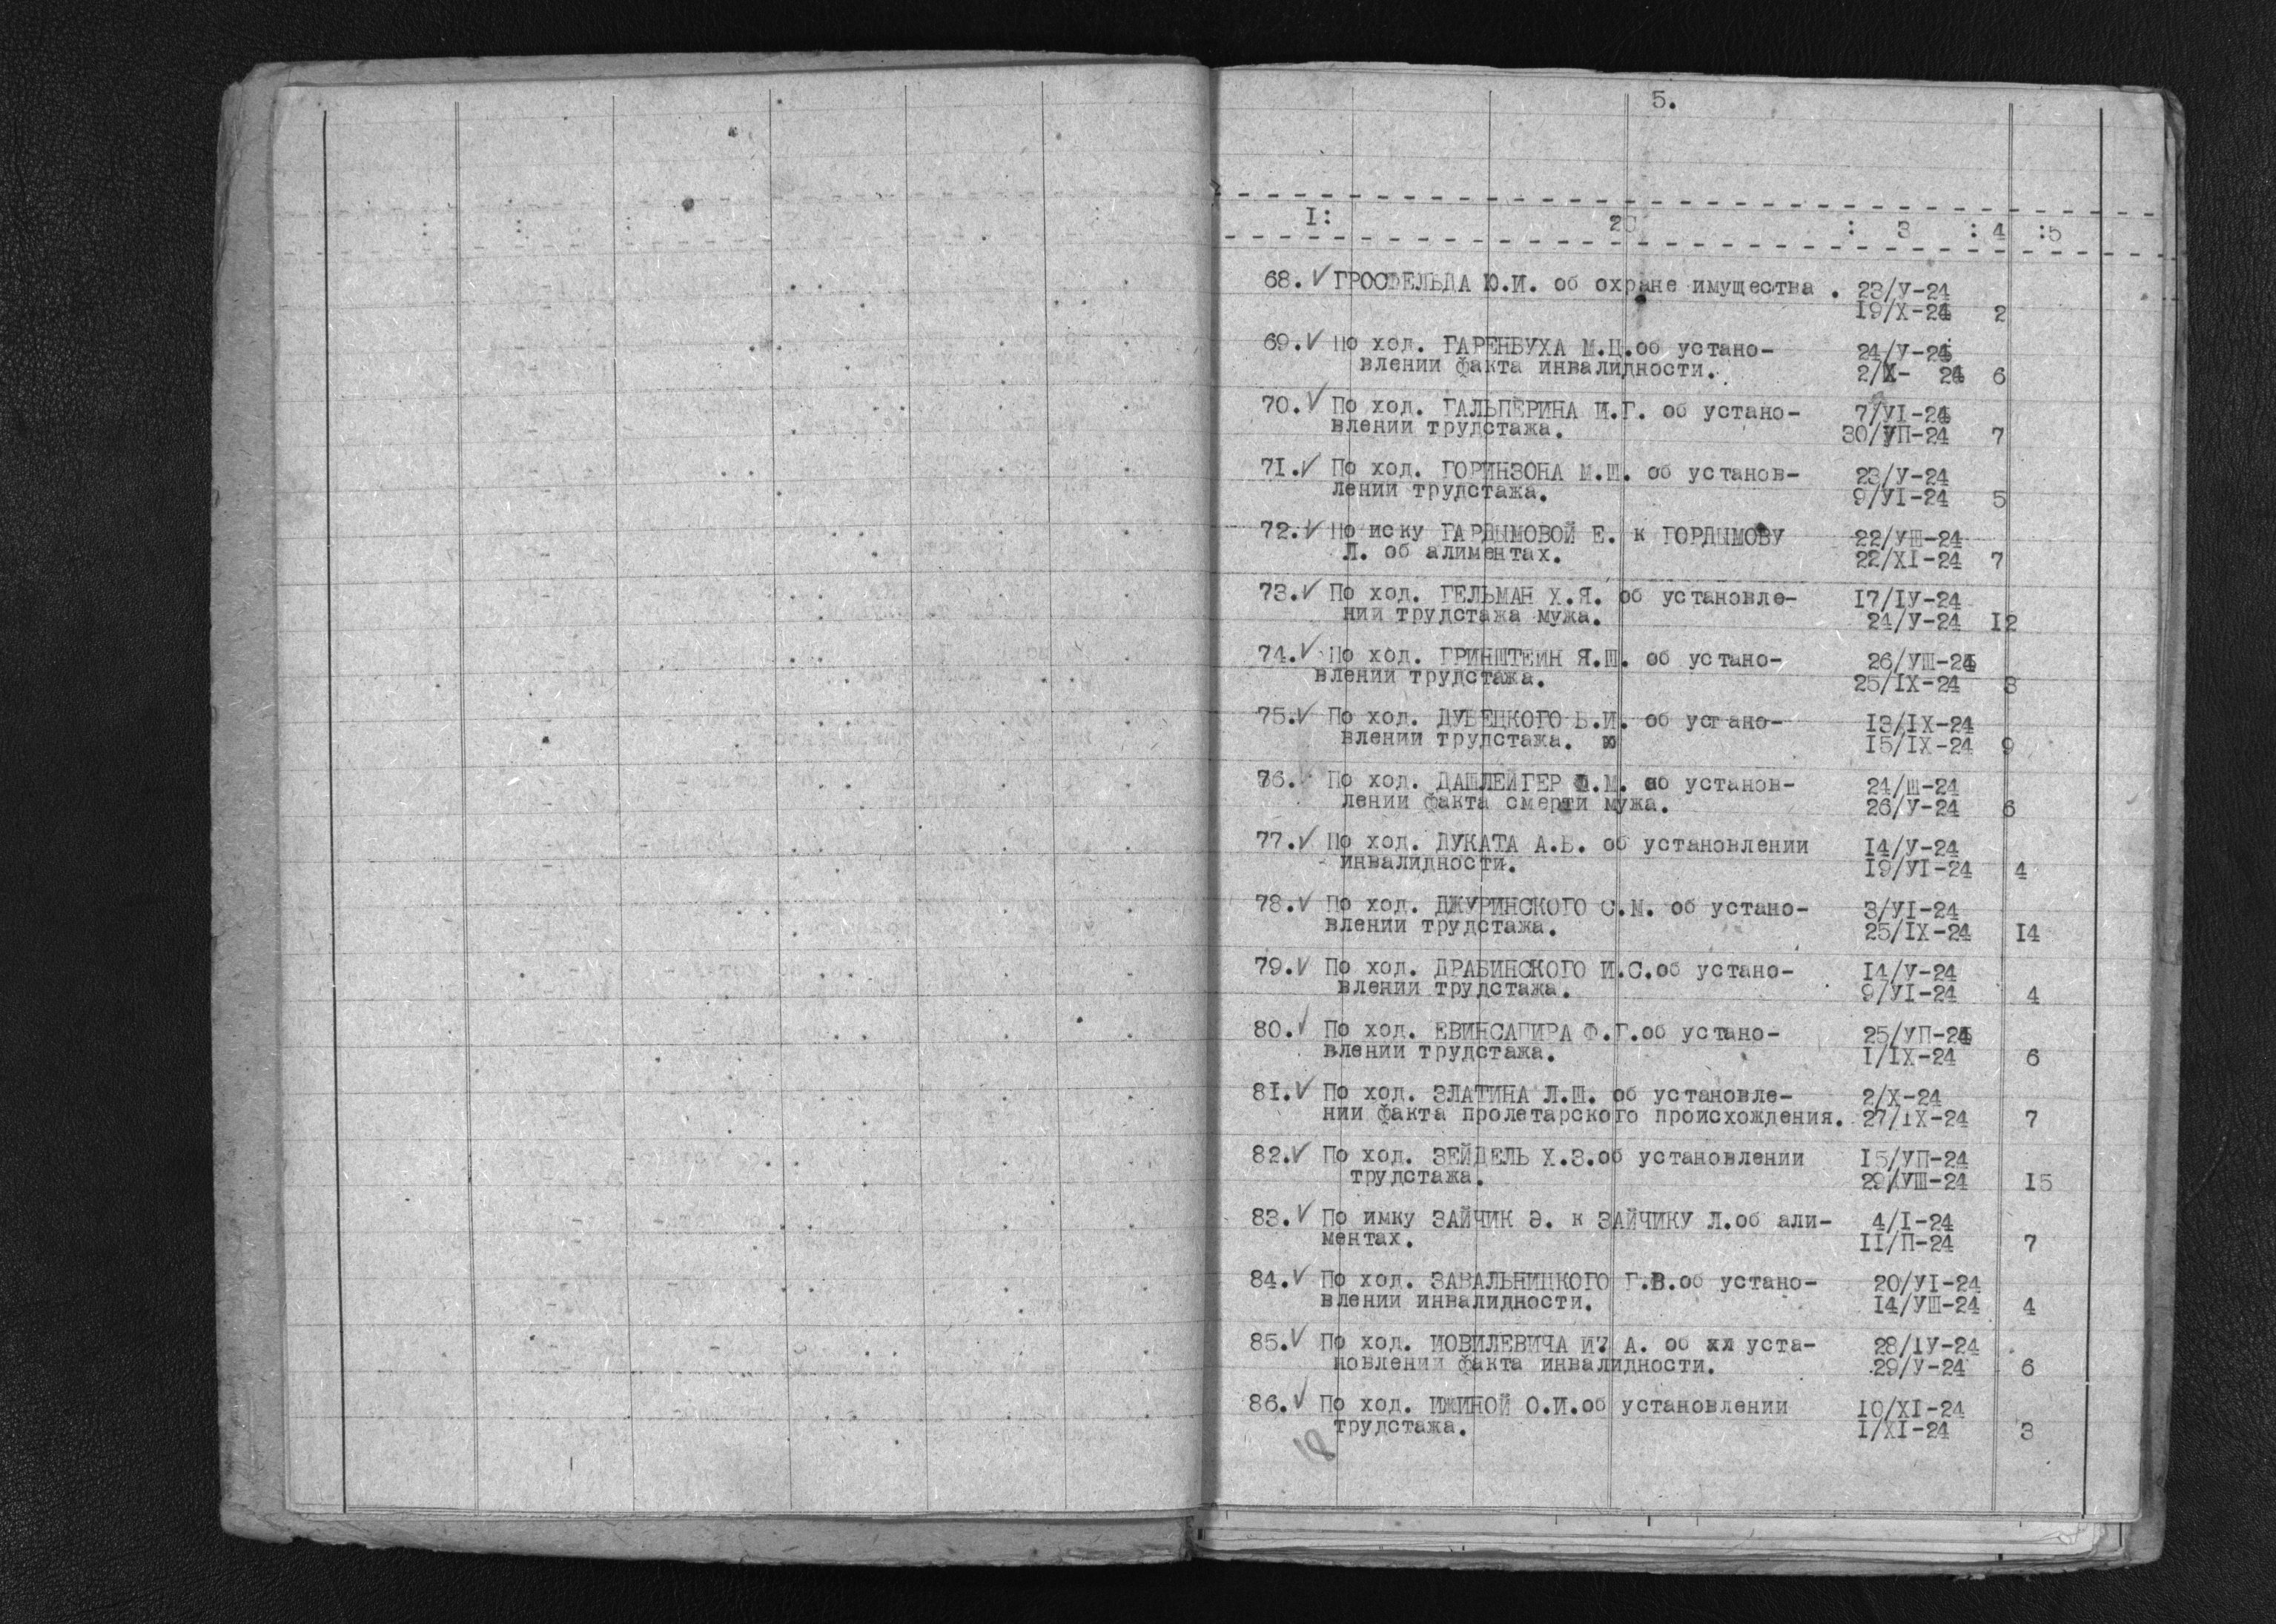 5.
I: 2 : 3 : 4 :5
68. ГРОСФЕЛЬДА Ю.И. об охране имущества . 23/У-24
19/Х-24 2
69. По ход. ГАРЕНБУХА М.Ц.об устано- 24/У-24
влении факта инвалидности. 2/Х- 24 6
70. По ход. ГАЛЬПЕРИНА И.Г. об устано- 7/УI-24
влении трудстажа. 30/УП-24 7
71. По ход. ГОРИНЗОНА М.Ш. об установ- 23/У-24
лении трудстажа. 9/УI-24 5
72. По иску ГАРДЫМОВОЙ Е. к ГОРДЫМОВУ 22/УШ-24
Л. об алиментах. 22/ХI-24 7
73. По ход. ГЕЛЬМАН Х.Я. об установле- I7/IУ-24
нии трудстажа мужа. 24/У-24 I2
74. По ход. ГРИНШТЕЙН Я.Ш. об устано- 26/УШ-24
влении трудстажа. 25/IХ-24 3
75. По ход. ДУБЕЦКОГО Б.И. об устано- I3/IХ-24
влении трудстажа. I5/IХ-24 9
76. По ход. ДАШЛЕЙГЕР Ф.М. об установ- 24/Ш-24
лении факта смерти мужа. 26/У-24 6
77. По ход. ДУКАТА А.Б. об установлении I4/У-24
инвалидности. I9/УI-24 4
78. По ход. ДЖУРИНСКОГО С.М. об устано- 3/УI-24
влении трудстажа. 25/IХ-24 I4
79. По ход. ДРАБИНСКОГО И.С.об устано- I4/У-24
влении трудстажа. 9/УI-24 4
80. По ход. ЕВИНСАПИРА Ф.Г.об устано- 25/УП-24
влении трудстажа. I/IХ-24 6
8I. По ход. ЗЛАТИНА Л.Ш. об установле- 2/Х-24
нии факта пролетарского происхождения. 27/IХ-24 7
82. По ход. ЗЕЙДЕЛЬ Х.З.об установлении I5/УП-24
трудстажа. 29/УШ-24 I5
83. По имку ЗАЙЧИК Э. к ЗАЙЧИКУ Л.об али- 4/I-24
ментах. II/П-24 7
84. По ход. ЗАВАЛЬНИЦКОГО Г.В.об устано- 20/УI-24
влении инвалидности. I4/УШ-24 4
85. По ход. ИОВИЛЕВИЧА И? А. об хл уста- 28/IУ-24
новлении факта инвалидности. 29/У-24 6
86. По ход. ИЖИНОЙ О.И.об установлении I0/ХI-24
трудстажа. I/ХI-24 3